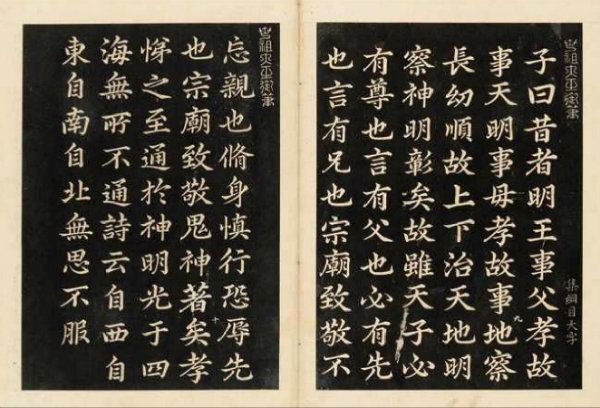 宣祖大王御筆
集綱目大字
子曰昔者明王事父孝故
事天明事母孝故事地察
九
長幼順故上下治天地明
察神明彰矣故雖天子必
有尊也言有父也必有先
也言有兄也宗廟致敬不
宣祖大王御筆
忘親也脩身慎行恐辱先
十
也宗廟致敬鬼神著矣孝
悌之至通於神明光于四
海無所不通詩云自西自
東自南自北無思不服